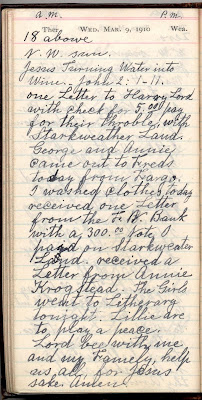 A.M. P.M.
Ther. WED. MAR. 9, 1910 Wea.
18 abowe
N. W. sun.
Jesus Turning Water into
Wine. John 2: 1-11.
one Letter to Hardy Lord
with check for 5.00 pay
for their Throble, with
Starkweather Land.
George and Annie
came out to Freds
today from Fargo.
I washed Clothes today
received one Letter
from the F. N. Bank
with a 300.00 Note, I
payd on Starkweater
Land. received a
Letter from Annie
Krogstead. The Girls
went to Litherarg
tonight. Lillie are
to play a peace.
Lord bee with me
and my Famely, help
us all, for Jesus
sake. Amen.